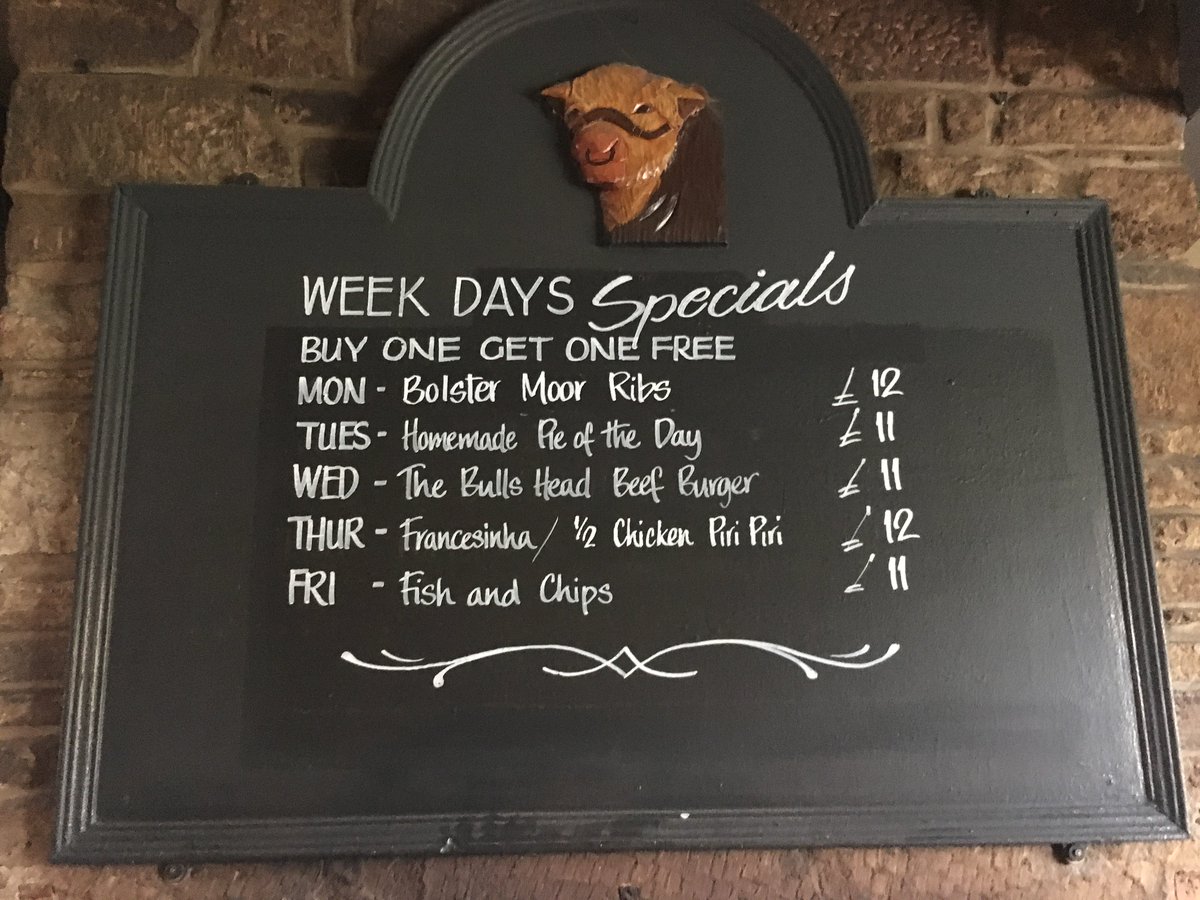 WEEK DAYS Specials
BUY ONE GET ONE FREE
MON - Bolster Moor Ribs £12
TUES - Homemade Pie of the Day £11
WED - The Bulls Head Beef Burger £11
THUR - Francesinha / ½ Chicken Piri Piri £12
FRI - Fish and Chips £11